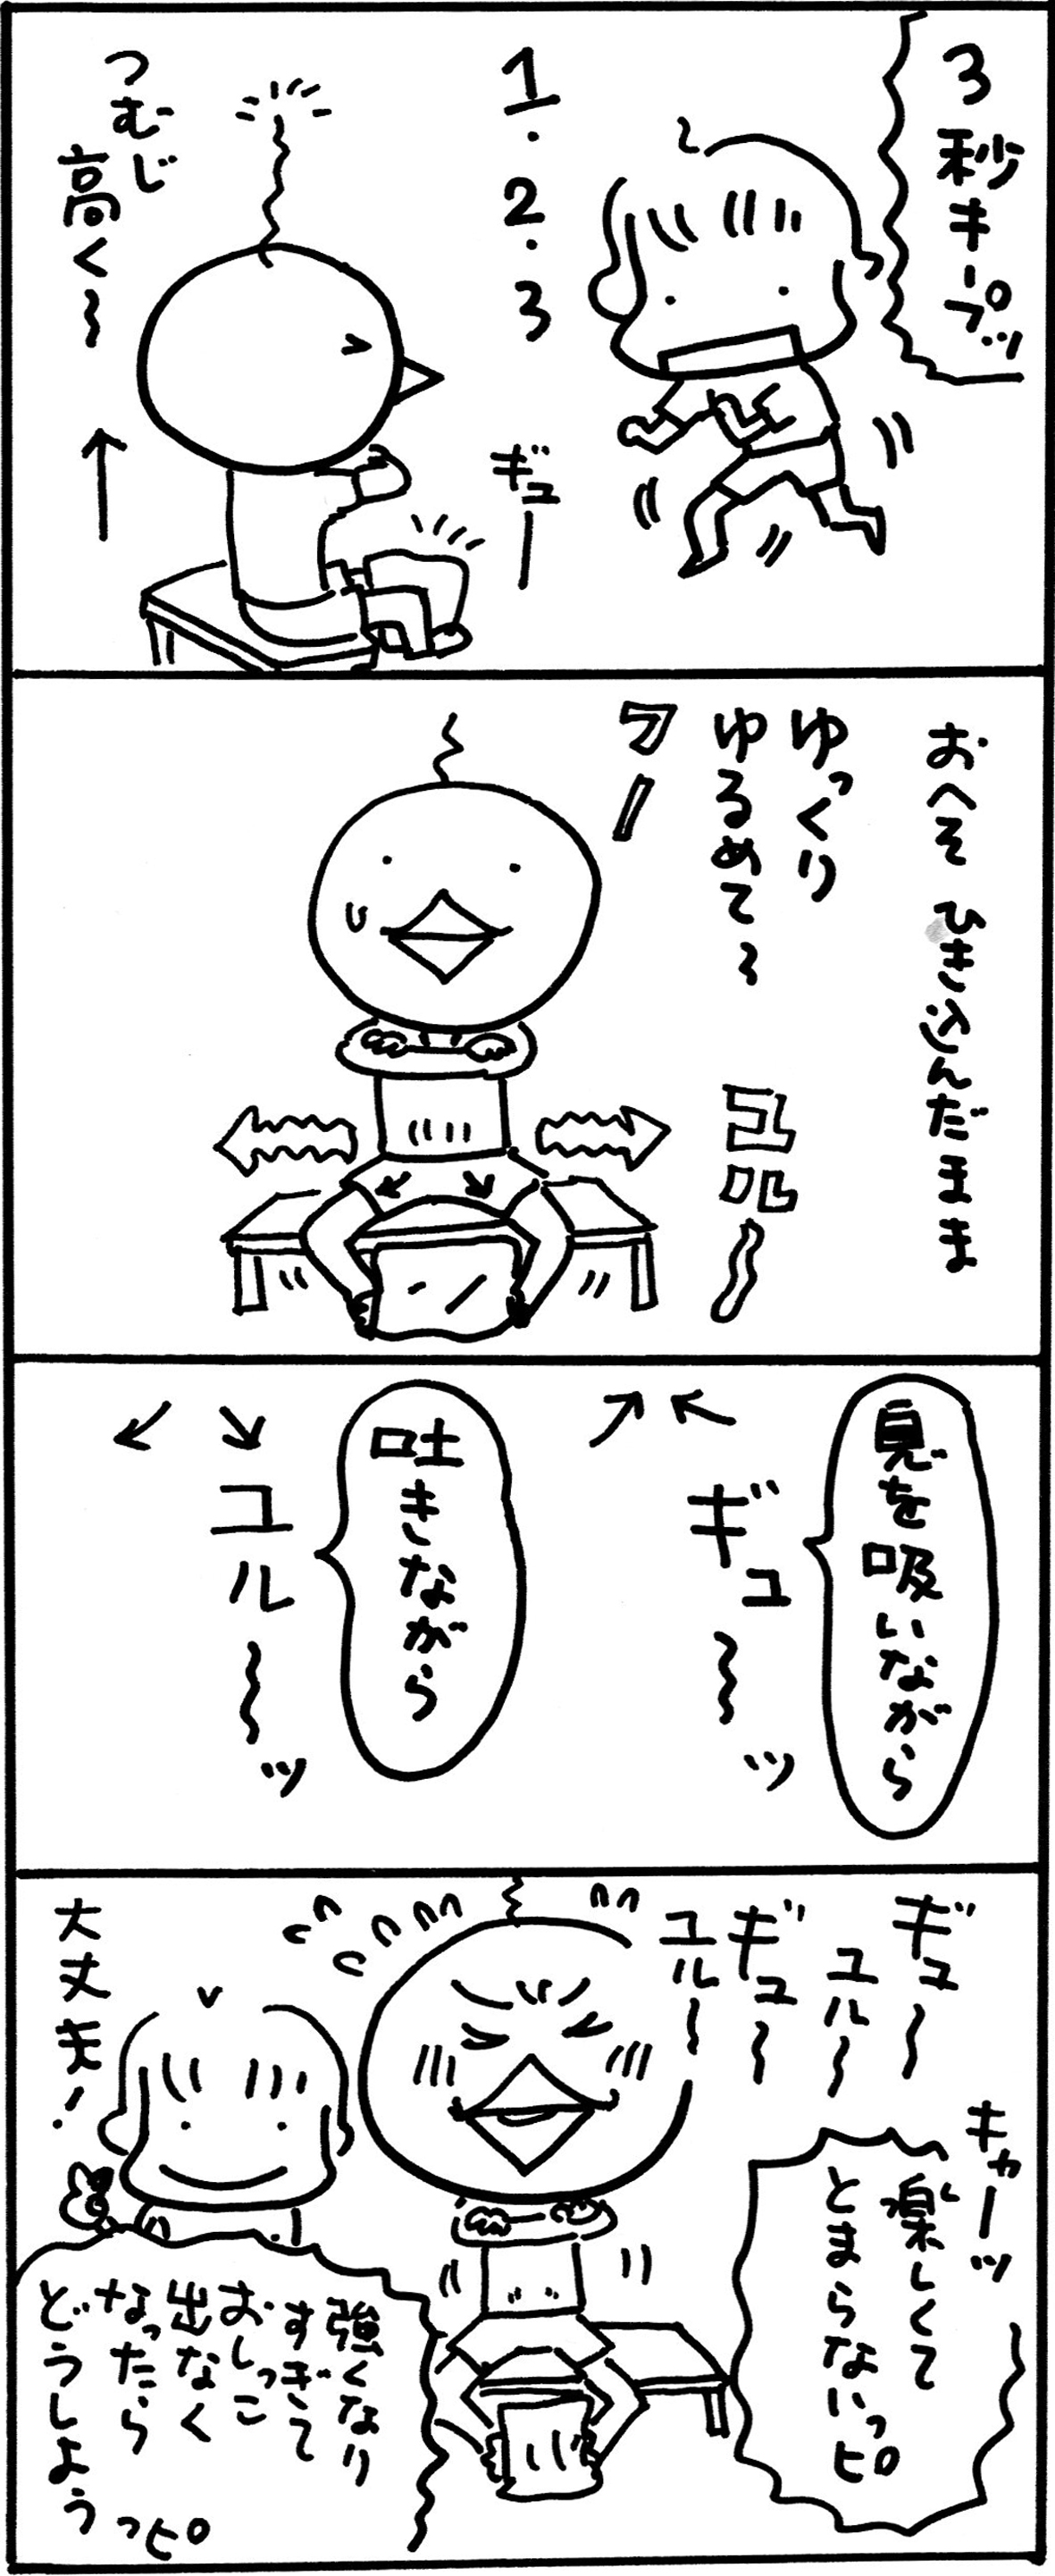 3秒キープッ
1・2・3
ギュー
つむじ
高く〜
おへそ ひき込んだまま
ゆっくり
ゆるめて〜
ワー
ユル〜
息を吸いながら
ギュ〜ッ
吐きながら
ユル〜ッ
ギュ〜
ユル〜
ギュ〜
ユル〜
キャーッ
楽しくて
とまらないっピ
大丈夫!
強くなり
すぎて
おしっこ
出なく
なったら
どうしようっピ